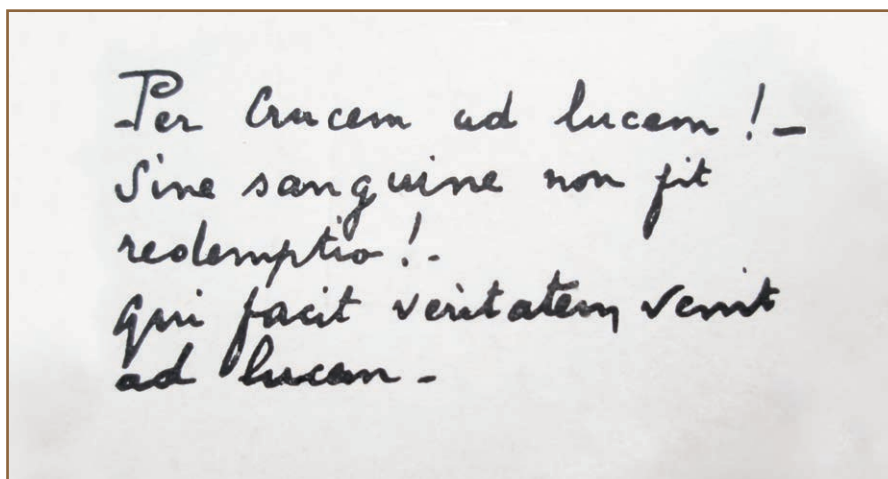 Per Crucem ad lucem ! -
Sine sanguine non fit
redemptio ! -
qui facit veritatem, venit
ad lucem -